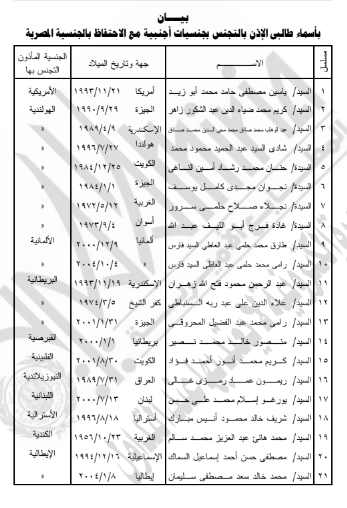 بيـــــان
بأسماء طالبى الإذن بالتجنس بجنسيات أجنبية مع الاحتفاظ بالجنسية المصرية
مسلسل الاســـــــم جهة وتاريخ الميلاد الجنسية المأذون التجنس بها
١ السيد/ ياسين مصطفى حامد محمد أبو زيد أمريكا ١٩٩٣/١١/٢١ الأمريكية
٢ السيد/ كريم محمد ضياء الدين عبد الشكور زاهر الجيزة ١٩٩٠/٩/٢٩ الهولندية
٣ السيد/ عبد الوهاب محمد صادق محمد محى الدين محمد صادق الإسكندرية ١٩٨٩/٤/٩ »
٤ السيد/ شادى السيد عبد الحميد محمود محمد هولندا ١٩٩٦/٧/٢٧ »
٥ السيدة/ حنان محمد رشاد أمين التاغى الكويت ١٩٨٤/١٢/٢٥ »
٦ السيدة/ نجوان مجدى كامل يوسف الجيزة ١٩٨٤/١/١ »
٧ السيدة/ نجلاء صلاح حلمى سرور الغربية ١٩٧٢/٥/١٢ »
٨ السيدة/ غادة فرج أبو الليف عبد الله أسوان ١٩٧٣/٩/٤ »
٩ السيد/ طارق محمد حلمى عبد العاطى السيد فارس ألمانيا ٢٠٠٠/١٢/٩ الألمانية
١٠ السيد/ رامى محمد حلمى عبد العاطى السيد فارس » ٢٠٠٤/١٠/٤ »
١١ السيد/ عبد الرحمن محمود فتح الله زهران الإسكندرية ١٩٩٣/١١/١٩ البريطانية
١٢ السيد/ علاء الدين على عبد ربه السنباطى كفر الشيخ ١٩٧٤/٣/٥ »
١٣ السيد/ رامى محمد عبد الفضيل المحروقى الجيزة ٢٠٠١/١/٣١ »
١٤ السيد/ منصور خالد محمد نصير بريطانيا ٢٠٠٠/١/١ القبرصية
١٥ السيد/ كريم محمد أنور أحمد فؤاد الكويت ٢٠٠١/٨/٣٠ الفلبينية
١٦ السيد/ ريمون عماد رمزى غالى العراق ١٩٨٩/٧/٣١ النيوزيلاندية
١٧ السيد/ يورغو إسلام محمد على حسن لبنان ٢٠٠٠/٧/١٣ اللبنانية
١٨ السيد/ شريف خالد محمود أنيس مبارك أستراليا ١٩٩٦/٨/١٨ الأسترالية
١٩ السيد/ محمد هانئ عبد العزيز محمد سالم الغربية ١٩٥٦/١٠/٢٣ الكندية
٢٠ السيد/ مصطفى حسن أحمد إسماعيل السماك الإسماعيلية ١٩٩٤/١٢/١٦ الإيطالية
٢١ السيد/ محمد خالد سعد مصطفى سليمان إيطاليا ٢٠٠٤/١/٨ »